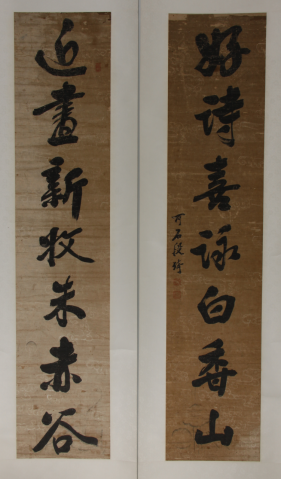 好詩喜詠白香山
可石
近畫新收朱赤谷